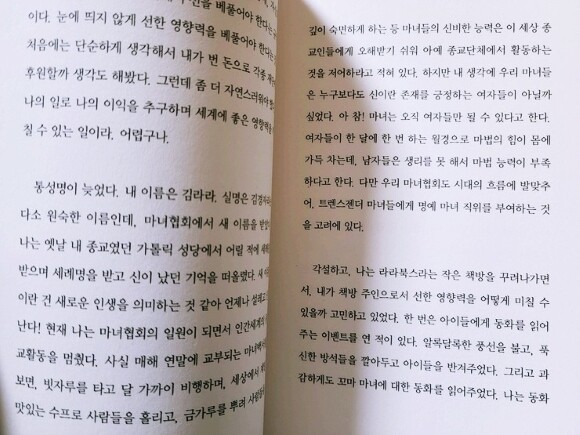 이다. 눈에 띄지 않게 선한 영향력을 베풀어야 한다는
처음에는 단순하게 생각해서 내가 번 돈으로 각종
후원할까 생각도 해봤다. 그런데 좀 더 자연스러워야
나의 일로 나의 이익을 추구하며 세계에 좋은 영향력을
칠 수 있는 일이라. 어렵구나.
통성명이 늦었다. 내 이름은 김라라. 실명은
다소 원숙한 이름인데, 마녀협회에서 새 이름을 받았
나는 옛날 내 종교였던 가톨릭 성당에서 어릴 적에 세례
받으며 세례명을 받고 신이 났던 기억을 떠올렸다. 새
이란 건 새로운 인생을 의미하는 것 같아 언제나 설레고
난다! 현재 나는 마녀협회의 일원이 되면서 인간세계의
교활동을 멈췄다. 사실 매해 연말에 교부되는 마녀
보면, 빗자루를 타고 달 가까이 비행하며, 세상에서
맛있는 수프로 사람들을 홀리고, 금가루를 뿌려
깊이 숙면하게 하는 등 마녀들의 신비한 능력은 이 세상 종
교인들에게 오해받기 쉬워 아예 종교단체에서 활동하는
것을 저어하라고 적혀 있다. 하지만 내 생각에 우리 마녀들
은 누구보다도 신이란 존재를 긍정하는 여자들이 아닐까
싶었다. 아 참! 마녀는 오직 여자들만 될 수 있다고 한다.
여자들이 한 달에 한 번 하는 월경으로 마법의 힘이 몸에
가득 차는데, 남자들은 생리를 못 해서 마법 능력이 부족
하다고 한다. 다만 우리 마녀협회도 시대의 흐름에 발맞추
어, 트렌스젠더 마녀들에게 명예 마녀 직위를 부여하는 것
을 고려에 있다.
각설하고, 나는 라라북스라는 작은 책방을 꾸려나가면
서, 내가 책방 주인으로서 선한 영향력을 어떻게 미칠 수
있을까 고민하고 있었다. 한 번은 아이들에게 동화를 읽어
주는 이벤트를 연 적이 있다. 알록달록한 풍선을 불고, 푹
신한 방석들을 깔아두고 아이들을 반겨주었다. 그리고 과
감하게도 꼬마 마녀에 대한 동화를 읽어주었다. 나는 동화